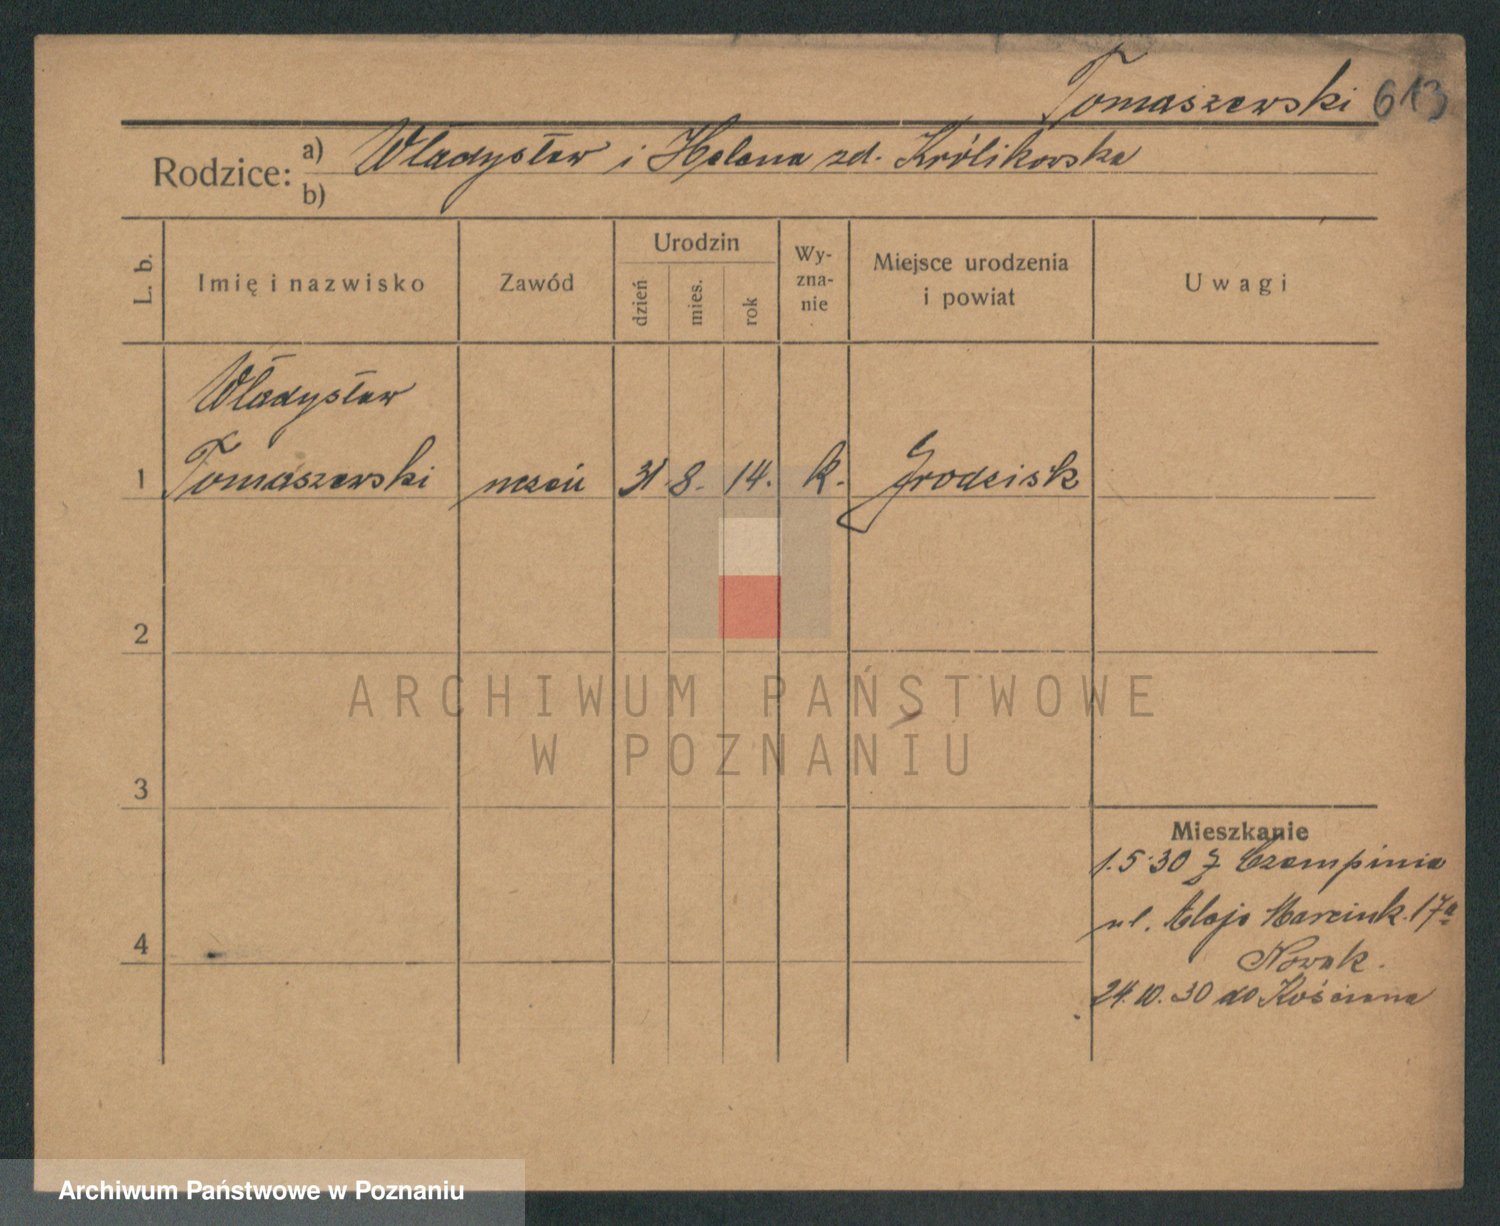 Tomaszewski 613
Rodzice: a) Władysław i Helena zd. Królikowska
b)
L. b.
Imię i nazwisko
Zawód
Urodzin
dzień
mies.
rok
Wy-
zna-
nie
Miejsce urodzenia
i powiat
Uwagi
Władysław
1 Tomaszewski uczeń 31. 8. 14. k. Grodzisk
2
ARCHIWUM PAŃSTWOWE
W POZNANIU
3
Mieszkanie
1.5.30 z Czempinia
ul. Marcink. 17a
4
Nowak.
24.10.30 do Kościana
Archiwum Państwowe w Poznaniu